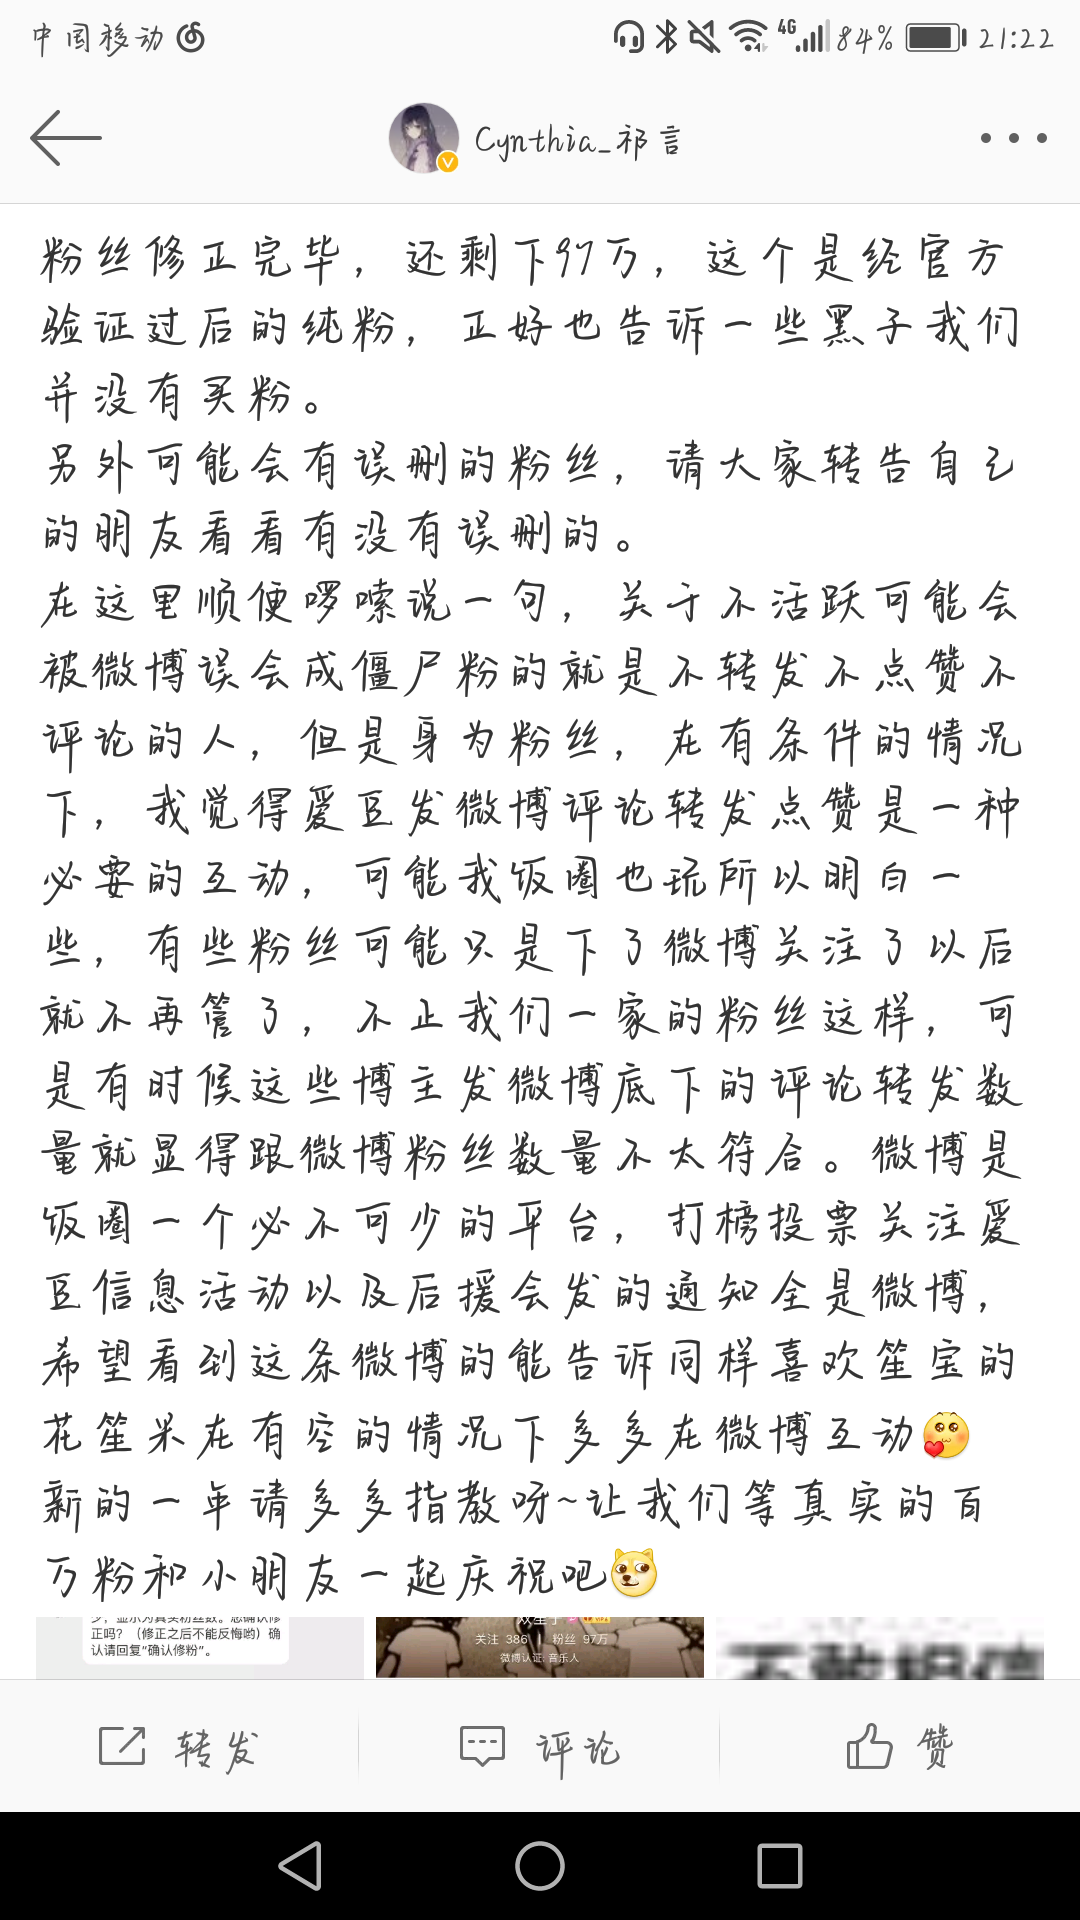 中国移动
4G
84%
21:22
Cynthia_祁言
粉丝修正完毕，还剩下97万，这个是经官方
验证过后的纯粉，正好也告诉一些黑子我们
并没有买粉。
另外可能会有误删的粉丝，请大家转告自己
的朋友看看有没有误删的。
在这里顺便啰嗦说一句，关于不活跃可能会
被微博误会成僵尸粉的就是不转发不点赞不
评论的人，但是身为粉丝，在有条件的情况
下，我觉得爱豆发微博评论转发点赞是一种
必要的互动，可能我饭圈也玩所以明白一
些，有些粉丝可能只是下了微博关注了以后
就不再管了，不止我们一家的粉丝这样，可
是有时候这些博主发微博底下的评论转发数
量就显得跟微博粉丝数量不太符合。微博是
饭圈一个必不可少的平台，打榜投票关注爱
豆信息活动以及后援会发的通知全是微博，
希望看到这条微博的能告诉同样喜欢笙宝的
花笙米在有空的情况下多多在微博互动
新的一年请多多指教呀~让我们等真实的百
万粉和小朋友一起庆祝吧
正吗？（修正之后不能反悔哟）确
认请回复“确认修粉”。
关注 386 | 粉丝 97万
微博认证：音乐人
不敢相信
转发
评论
赞